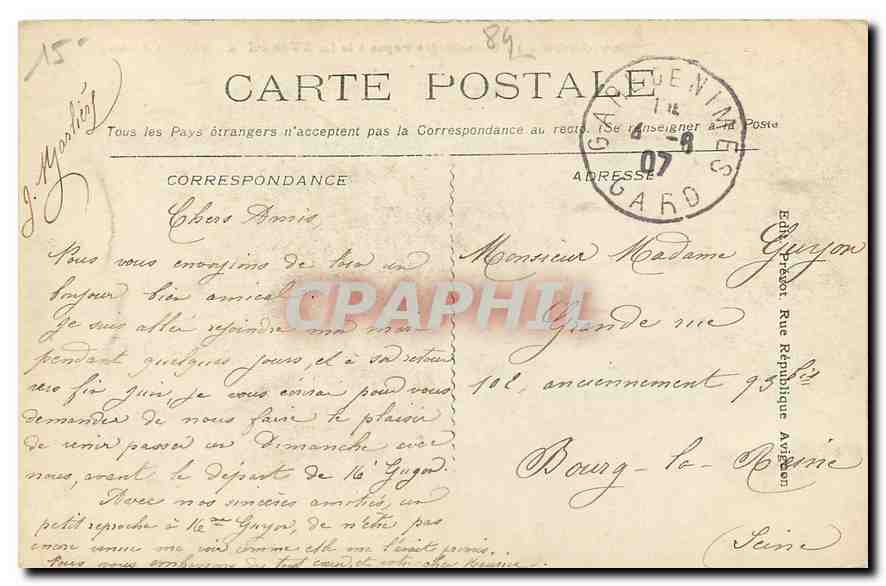 15
84
CARTE POSTALE
Tous les Pays étrangers n'acceptent pas la Correspondance au recto. (Se renseigner à la Poste
GARE DE NIMES
4 -6
07
GARD
CORRESPONDANCE
ADRESSE
Chers Amis,
Nous vous envoyons de loin un
bonjour bien amical
Je suis allée rejoindre mon mari
pendant quelques jours, et à son retour
vers fin juin, je vous écrirai pour vous
demander de nous faire le plaisir
de venir passer un Dimanche avec
nous, avant le départ de Mr Guyon.
Avec nos sincères amitiés, un
petit reproche à Mme Guyon, de n'être pas
encore venue me voir comme elle me l'avait promis.
Nous vous embrassons de tout cœur, et votre cher
J. Marliers
Monsieur Madame Guyon
Grande rue
102, anciennement 93 bis
Bourg-la-Reine
(Seine
Edit. Prévot. Rue République Avignon
CPAPHIL